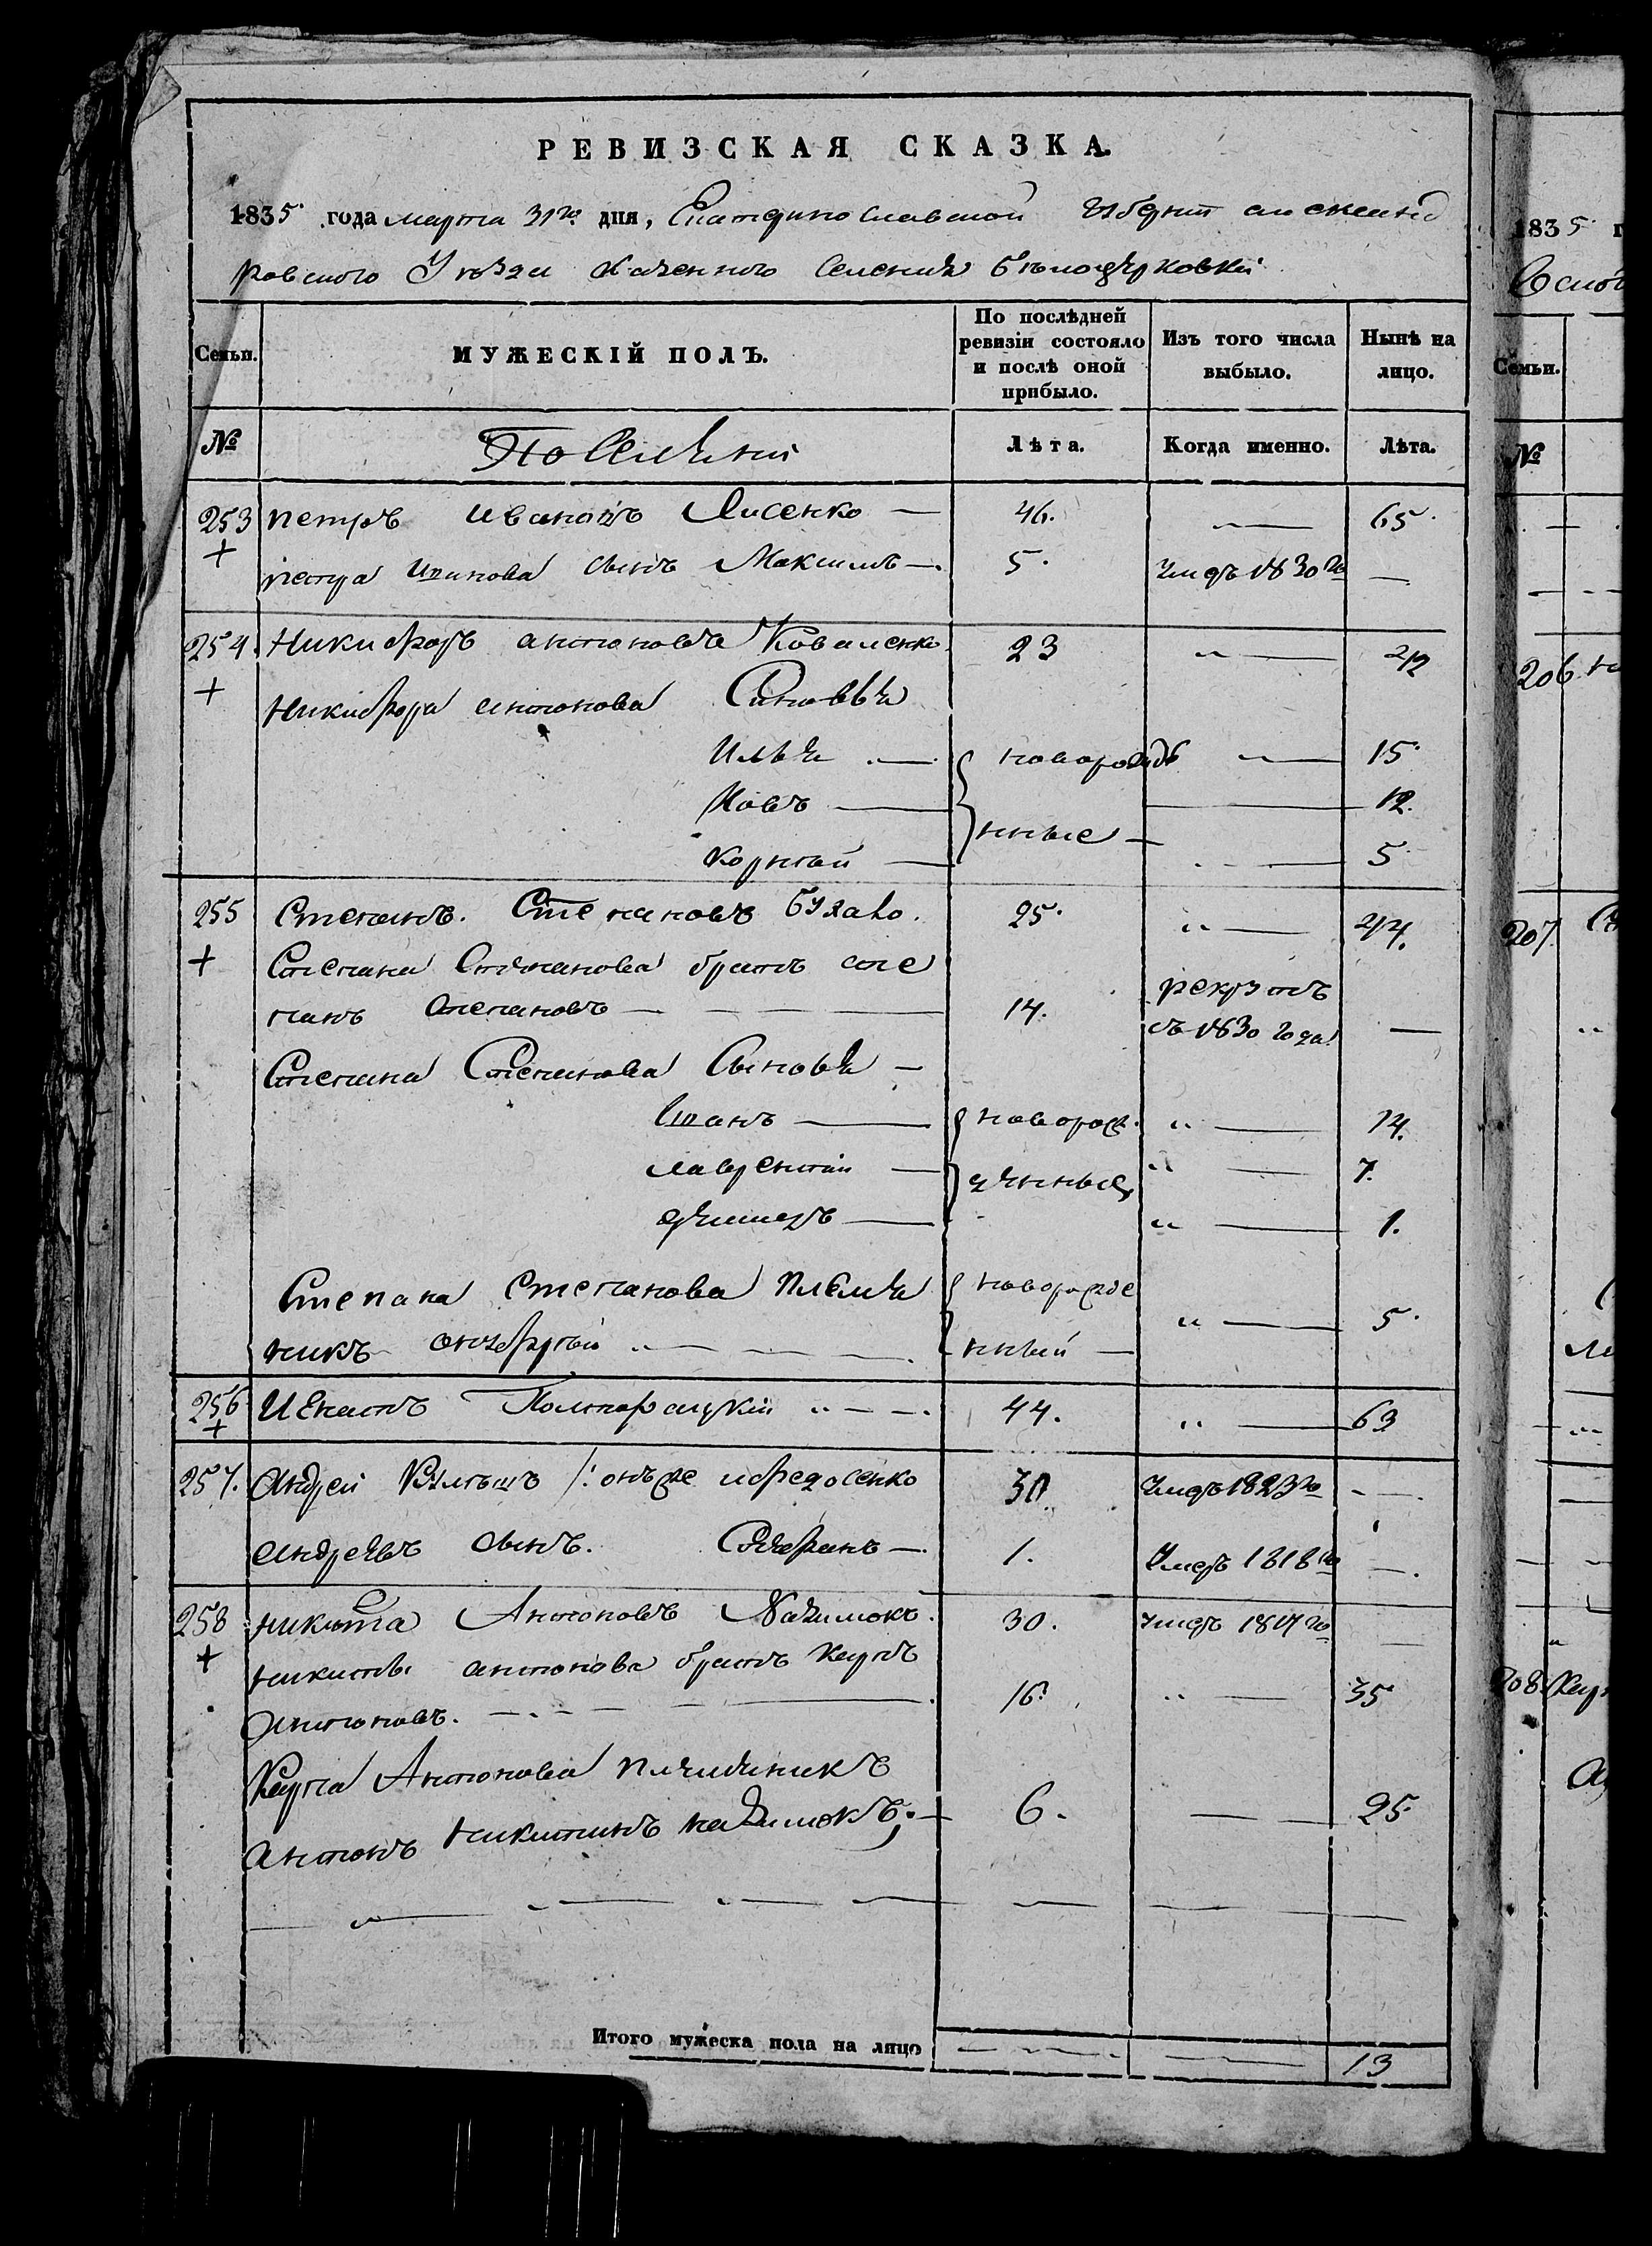 РЕВИЗСКАЯ СКАЗКА.
1835 года марта 31го дня, Екатеринославской Губернии Александ
ровского Уезда Казенного Селения Белоцерковки
Семьи. МУЖЕСКІЙ ПОЛЪ. По послѣдней ревизіи состояло и послѣ оной прибыло. Изъ того числа выбыло. Нынѣ на лицо.
№ Поселяни Лѣта. Когда именно. Лѣта.
253 петръ Ивановъ Лисенко — 46. — 65
петра Иванова сынъ Максимъ — 5. Умеръ 1830го —
254. Никифоръ антоновъ Коваленко 23 " — 42
Никифора антонова Синовья
Илья — новорожде " — 15
Иовъ — — 12.
нные —
Корней — — 5
255 Степанъ Степановъ 25. " — 44.
Степана Степанова братъ сте
панъ Степановъ — 14. рекрутъ съ 1830 года —
Степана Степанова Сыновья —
Иванъ — новорож " — 14.
лаврентій — денные " — 7.
— " — 1.
Степана Степанова племя новорожде
никъ — нный — " — 5.
256 Игнатъ " — — 44. " — 63
257. Андрей /: онъже 30. Умеръ 1823го — —
андреевъ сынъ. — 1. Умеръ 1818го —.
258 никита Антоновъ 30. умеръ —
никиты антонова братъ Карпъ
Антоновъ. — 16. " — 35
Карпа Антонова племяникъ
антонъ никитинъ — 6. — 25
Итого мужеска пола на лицо — — 13
1835 г
Семьи.
№
206
207
208. Кар